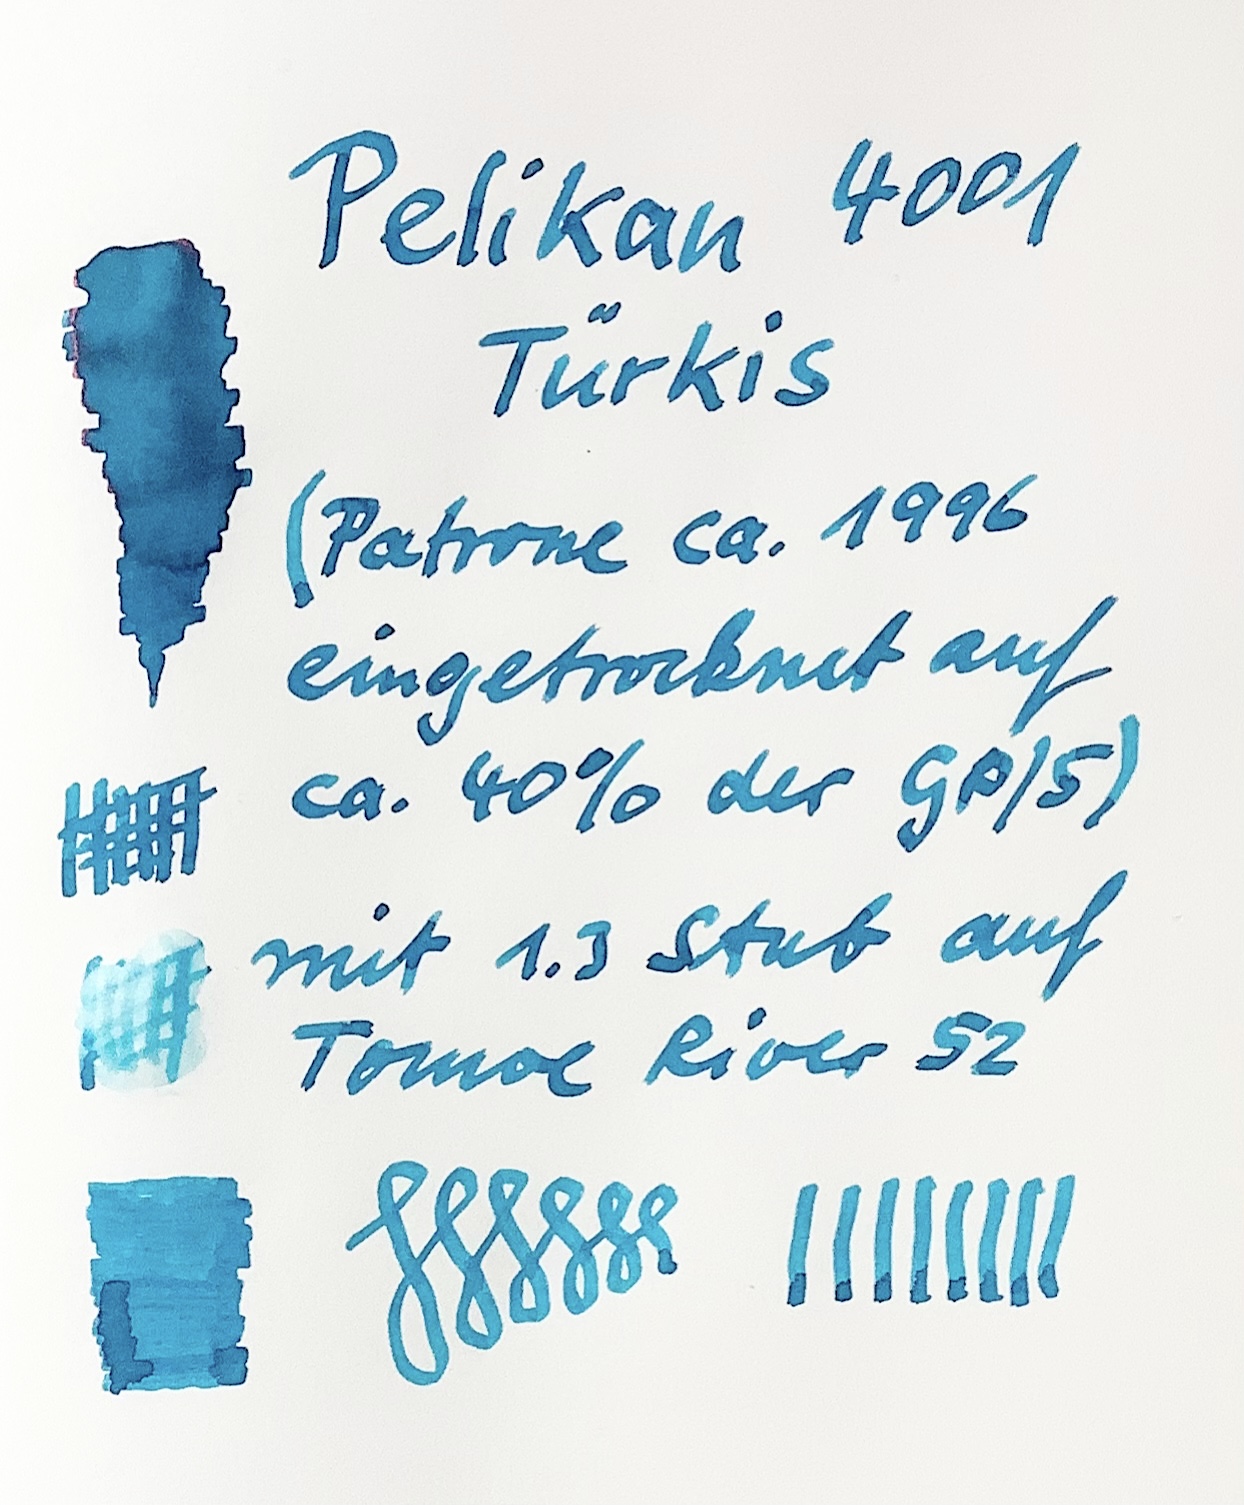 Pelikan 4001
Türkis
(Patrone ca. 1996
eingetrocknet auf
ca. 40% der GP/5)
mit 1.3 Stub auf
Tomoe River 52